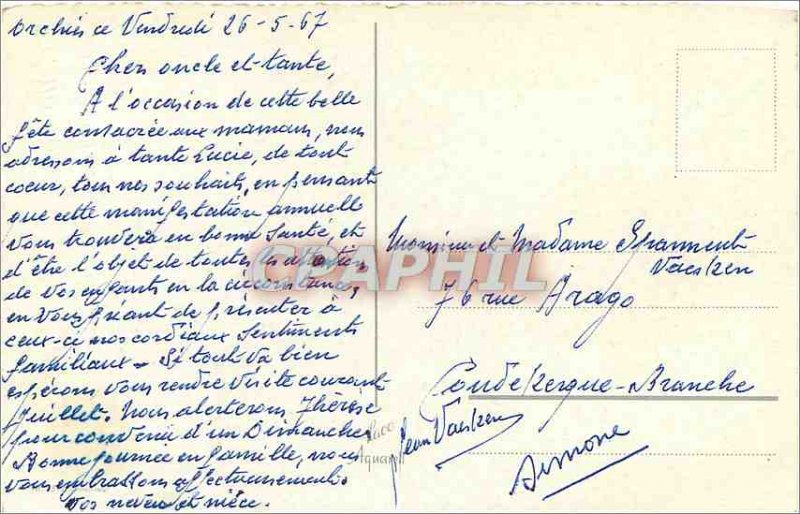 Orchies ce Vendredi 26-5-67
Cher oncle et tante,
A l'occasion de cette belle
fête consacrée aux mamans, nous
adressons à tante Lucie, de tout
coeur, tous nos souhaits, en pensant
que cette manifestation annuelle
vous trouvera en bonne santé, et
d'être l'objet de toutes les attentions
de vos enfants en la circonstance,
en vous priant de présenter à
ceux-ci nos cordiaux sentiments
familiaux - Si tout va bien
espérons vous rendre visite courant
Juillet. Nous alerterons Thérèse
pour convenir d'un Dimanche.
Bonne journée en famille, nous
vous embrassons affectueusement.
Vos neveu et nièce.
Jean Vaesken
Simone
Monsieur et Madame
Vaesken
76 rue Arago
Coudekerque-Branche
CPAPHIL
Aquarell